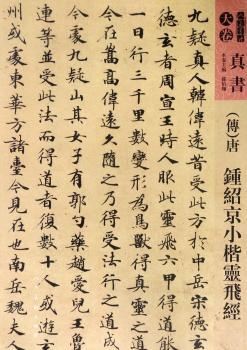 大卷
真書
（傳）唐 鍾紹京小楷靈飛經
九疑真人韓偉遠昔受此方於中岳宋德玄
德玄者周宣王時人服此靈飛六甲得道能
一日行三千里數變形為鳥獸得真靈之道
今在嵩高偉遠久隨之乃得受法行之道成
今處九疑山其女子有郭勺藥趙愛兒王魯
連等並受此法而得道者復數十人或遊玄
州或處東華方諸臺今見在也南岳魏夫人